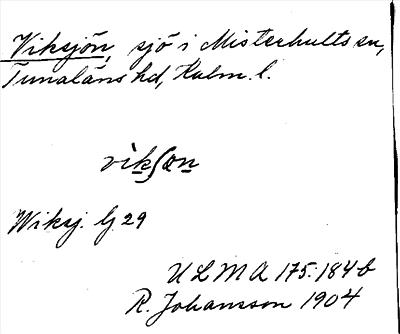 Viksjön, sjö i Misterhults sn,
Tunaläns hd, Kalm. l.
vìkʃøn
Wiksj. Gj 29
ULMA 175:184b
R. Johansson 1904